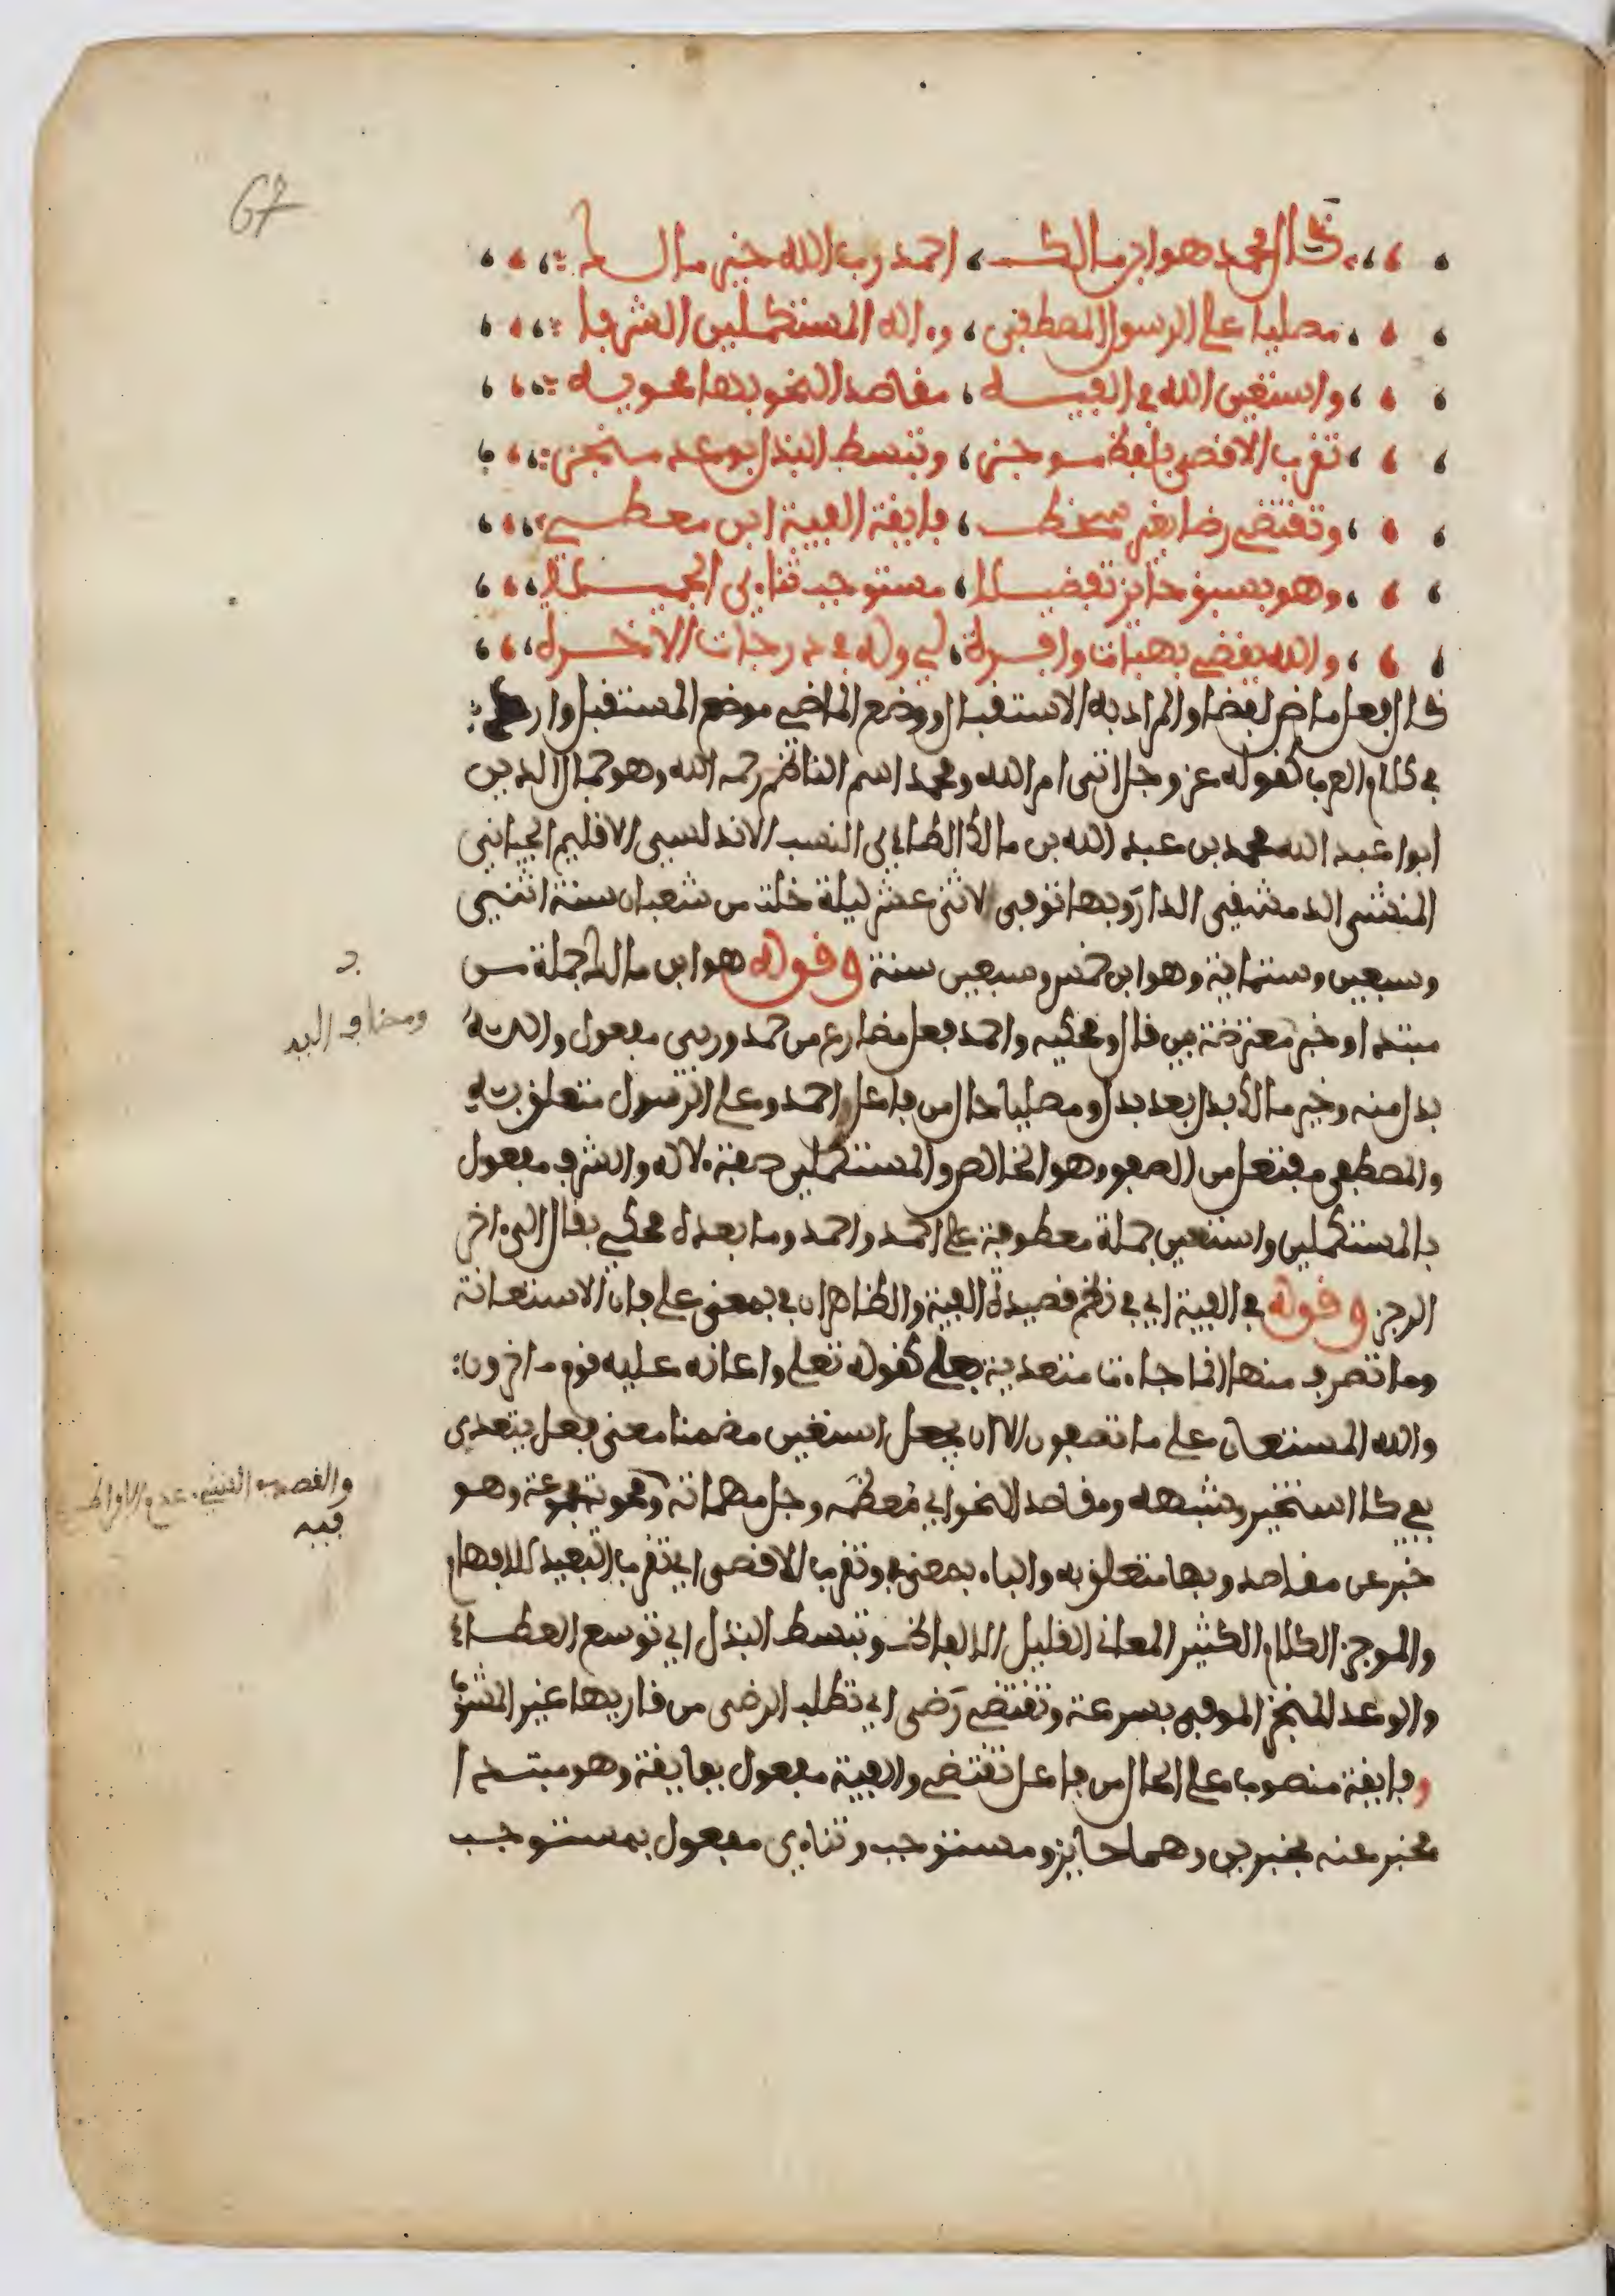 67
قال محمد هو ابن مالك ، احمد رب الله خير مالك
مصليا على الرسول المصطفى ، وءاله المستكملين الشرفا
واستعين الله في الفيه ، مقاصد النحو بها محويه
تقرب الاقصى بلفظ موجز ، وتبسط البذل بوعد منجز
وتقتضي رضا بغير سخط ، فايقة الفية ابن معط
وهو بسبق حايز تفضيلا ، مستوجب ثناءي الجميلا
والله يقضي بهبات وافرة ، لي وله في درجات الاخرة
قال فعل ماض لفظا والمراد به الاستقبال ووضع الماضي موضع المستقبل وارد
في كلام العرب كقوله عز وجل اتى امر الله ومحمد اسم الناظم رحمه الله وهو جمال الدين
ابوا عبد الله محمد بن عبد الله بن مالك الطاءي النسب الاندلسي الاقليم الجياني
المنشى الدمشقي الدار وبها توفي لاثني عشر ليلة خلت من شعبان سنة اثنين
وسبعين وستماية وهو ابن خمس وسبعين سنة وقوله هو ابن مالك جملة من
مبتدا وخبر معترضة بين قال ومحكيه واحمد فعل مضارع من حمد وربي مفعول والله
بدل منه وخير مالك بدل بعد بدل ومصليا حال من فاعل احمد وعلى الرسول متعلق به
والمصطفى مفتعل من الصفو وهو الخالص والمستكملين صفة لاله والشرف مفعول
بالمستكملين واستعين جملة معطوفة على احمد واحمد وما بعده محكي بقال الى ءاخر
الرجز وقوله في الفية اي في نظم قصيدة الفية والظاهر ان في بمعنى على فان الاستعانة
وما تصرف منها انما جاءت متعدية بعلى كقوله تعلى واعانه عليه قوم ءاخرون
والله المستعان على ما تصفون الا ان يجعل استعين مضمنا معنى فعل يتعدى
بفي كاستخير وشبهه ومقاصد النحو اي معظمه وجل مهماته ومحوية مجموعة وهو
خبر عن مقاصد وبها متعلق به والباء بمعنى في وتقرب الاقصى اي تقرب البعيد للافهام
والموجز الكلام الكثير المعاني القليل الالفاظ وتبسط البذل اي توسع العطاء
والوعد المنجز الموفى بسرعة وتقتضي رضى اي تطلب الرضى من قاريها غير المشوب
وفايقة منصوب على الحال من فاعل تقتضي والفية مفعول بفايقة وهو مبتدا
مخبر عنه بخبرين وهما حايز ومستوجب وثناءي مفعول بمستوجب
ومضاف اليه
فيه